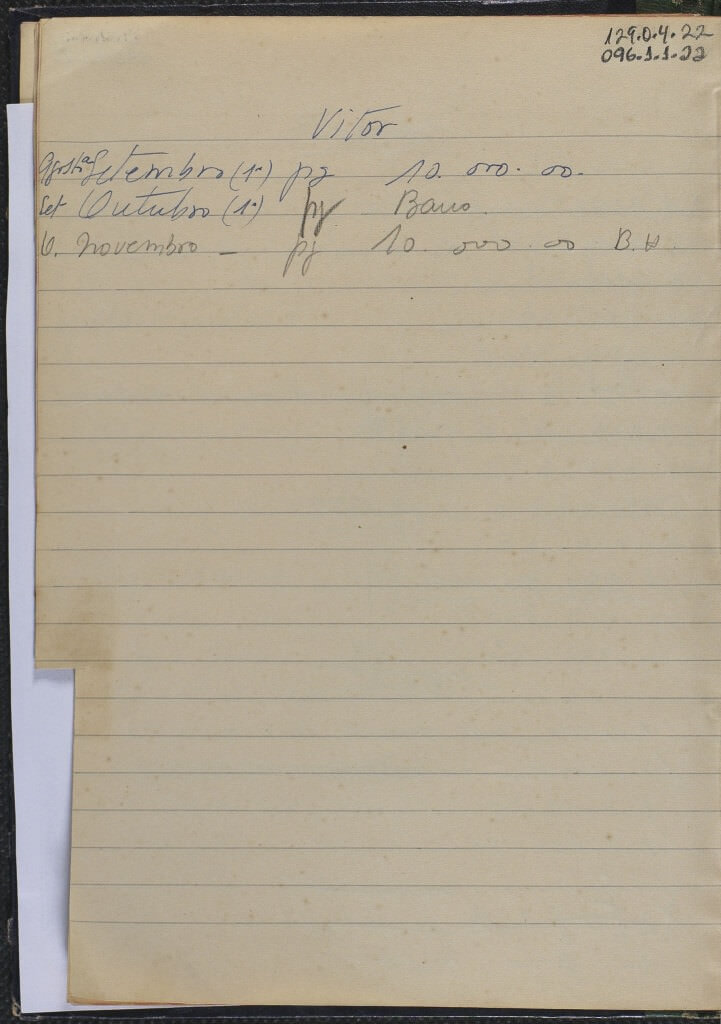 129.0.4.22
096.1.1.22
Vitor
Agosto Setembro (1º) pg 10.000.00.
Set Outubro (1º) pg Banco.
O. Novembro - pg 10.000.00 B.H.